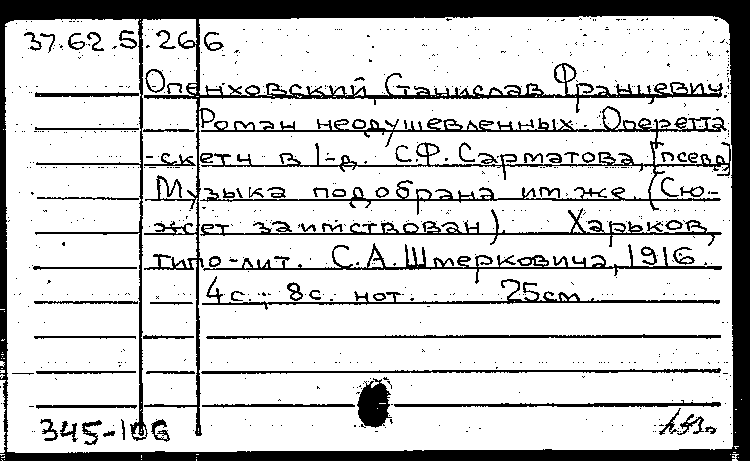 37.62.5.266
Опенховский, Станислав Францевич.
Роман неодушевленных. Оперетта
-скетч в 1-д. С.Ф. Сарматова, [псевд]
Музыка подобрана им же. (Сю-
жет заимствован). Харьков,
типо-лит. С.А. Шмерковича, 1916.
4с.; 8с. нот. 25см.
345-106